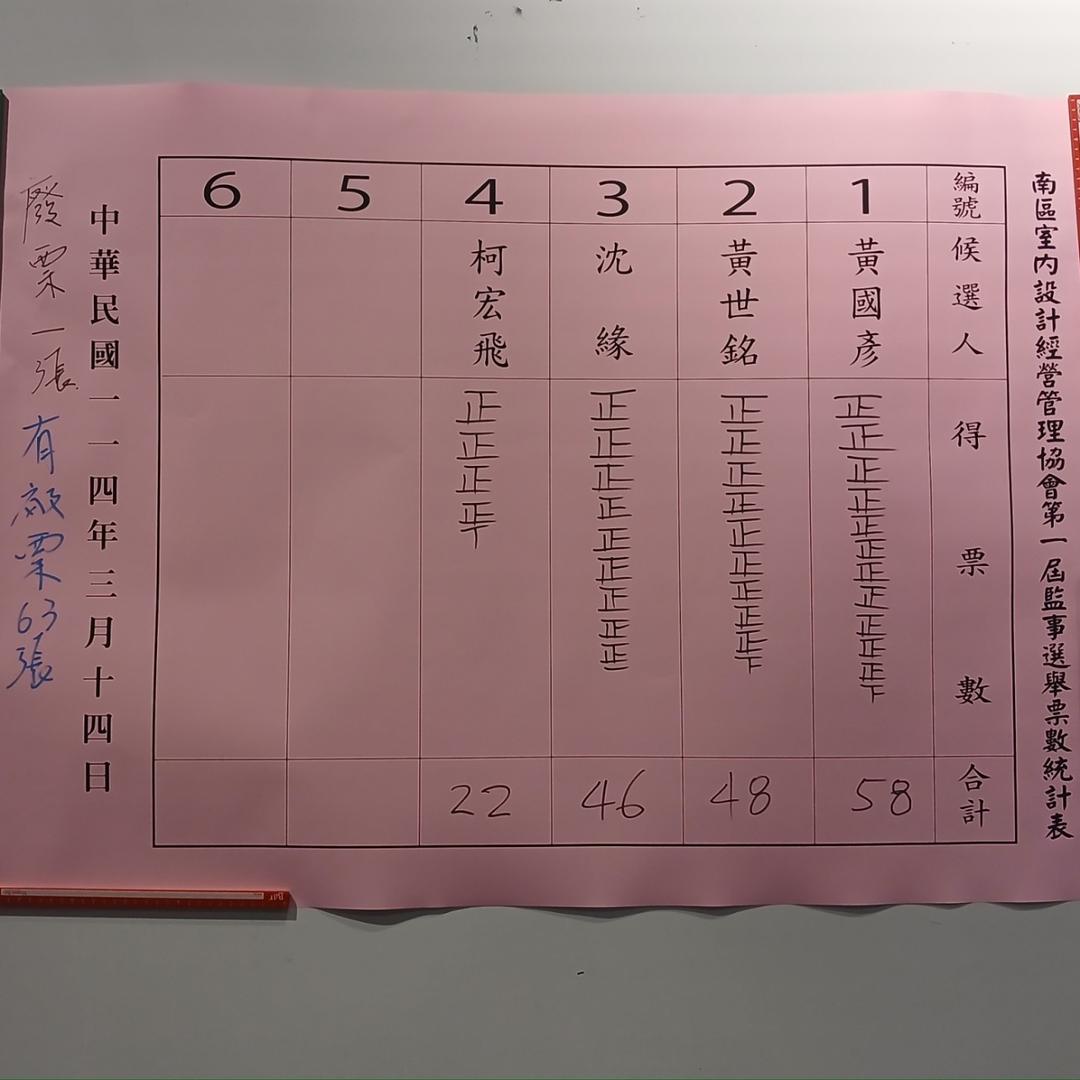 南區室內設計經營管理協會第一屆監事選舉票數統計表
編號
候選人
得票數
合計
1
黃國彥
正正正正正正正正正正正下
58
2
黃世銘
正正正正正正正正正下
48
3
沈緣
正正正正正正正正正一
46
4
柯宏飛
正正正正丅
22
5
6
中華民國一一四年三月十四日
廢票一張
有效票63張